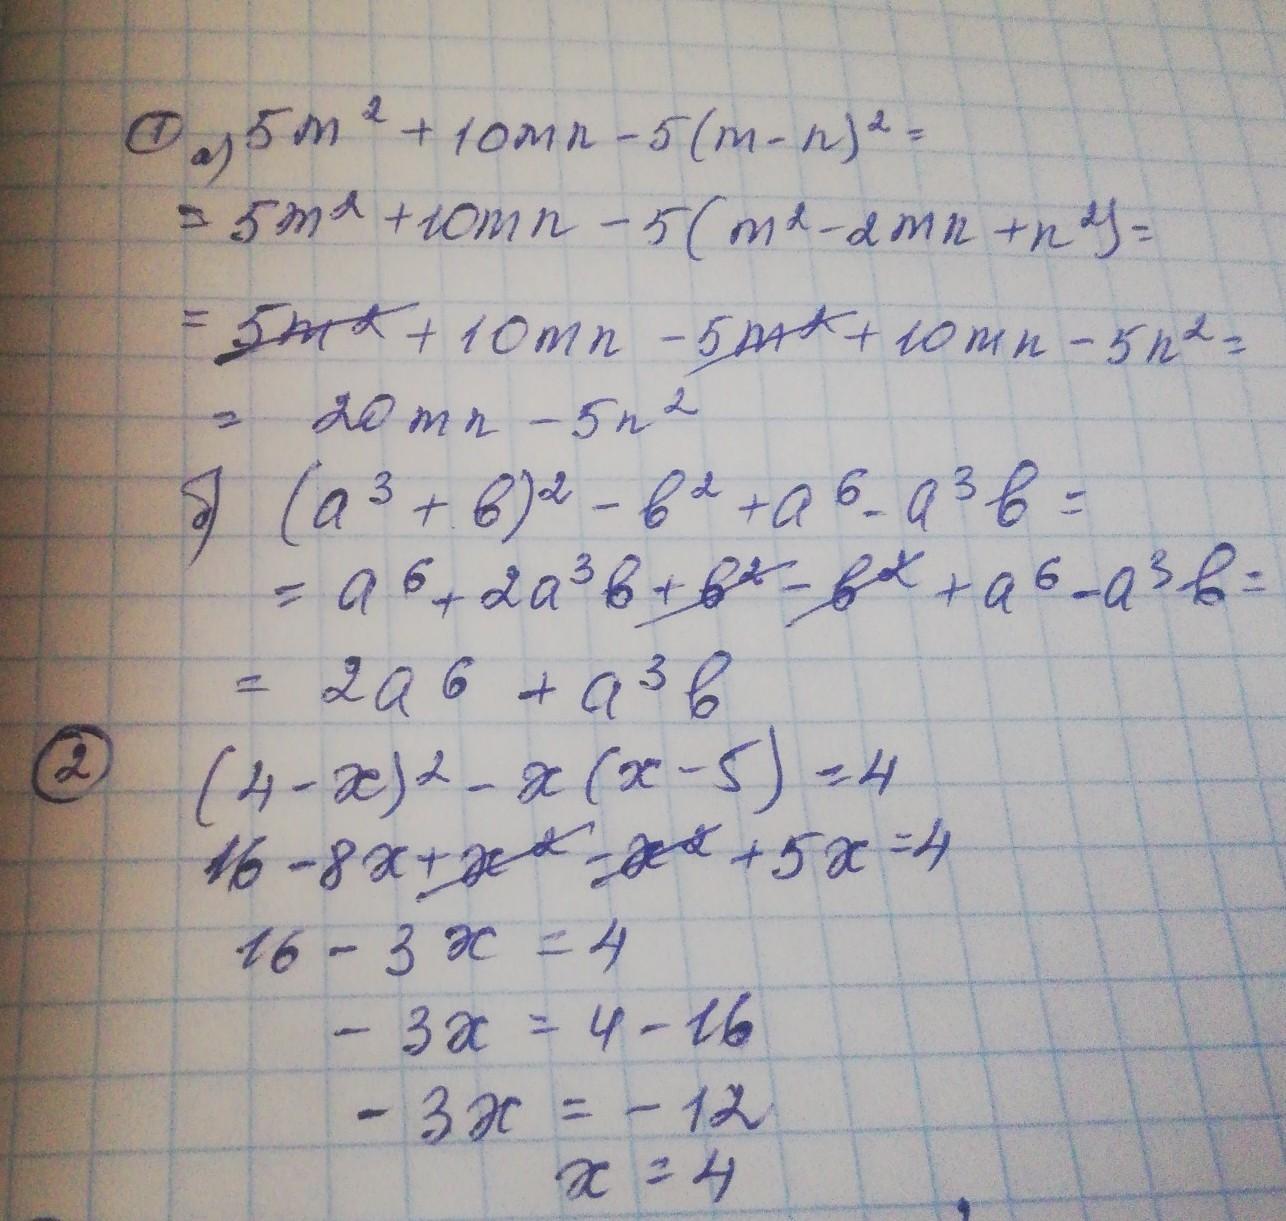 ① а) 5m² + 10mn - 5(m - n)² =
= 5m² + 10mn - 5(m² - 2mn + n²) =
= 5m² + 10mn - 5m² + 10mn - 5n² =
= 20mn - 5n²
б) (a³ + b)² - b² + a⁶ - a³b =
= a⁶ + 2a³b + b² - b² + a⁶ - a³b =
= 2a⁶ + a³b
② (4 - x)² - x(x - 5) = 4
16 - 8x + x² - x² + 5x = 4
16 - 3x = 4
- 3x = 4 - 16
- 3x = - 12
x = 4